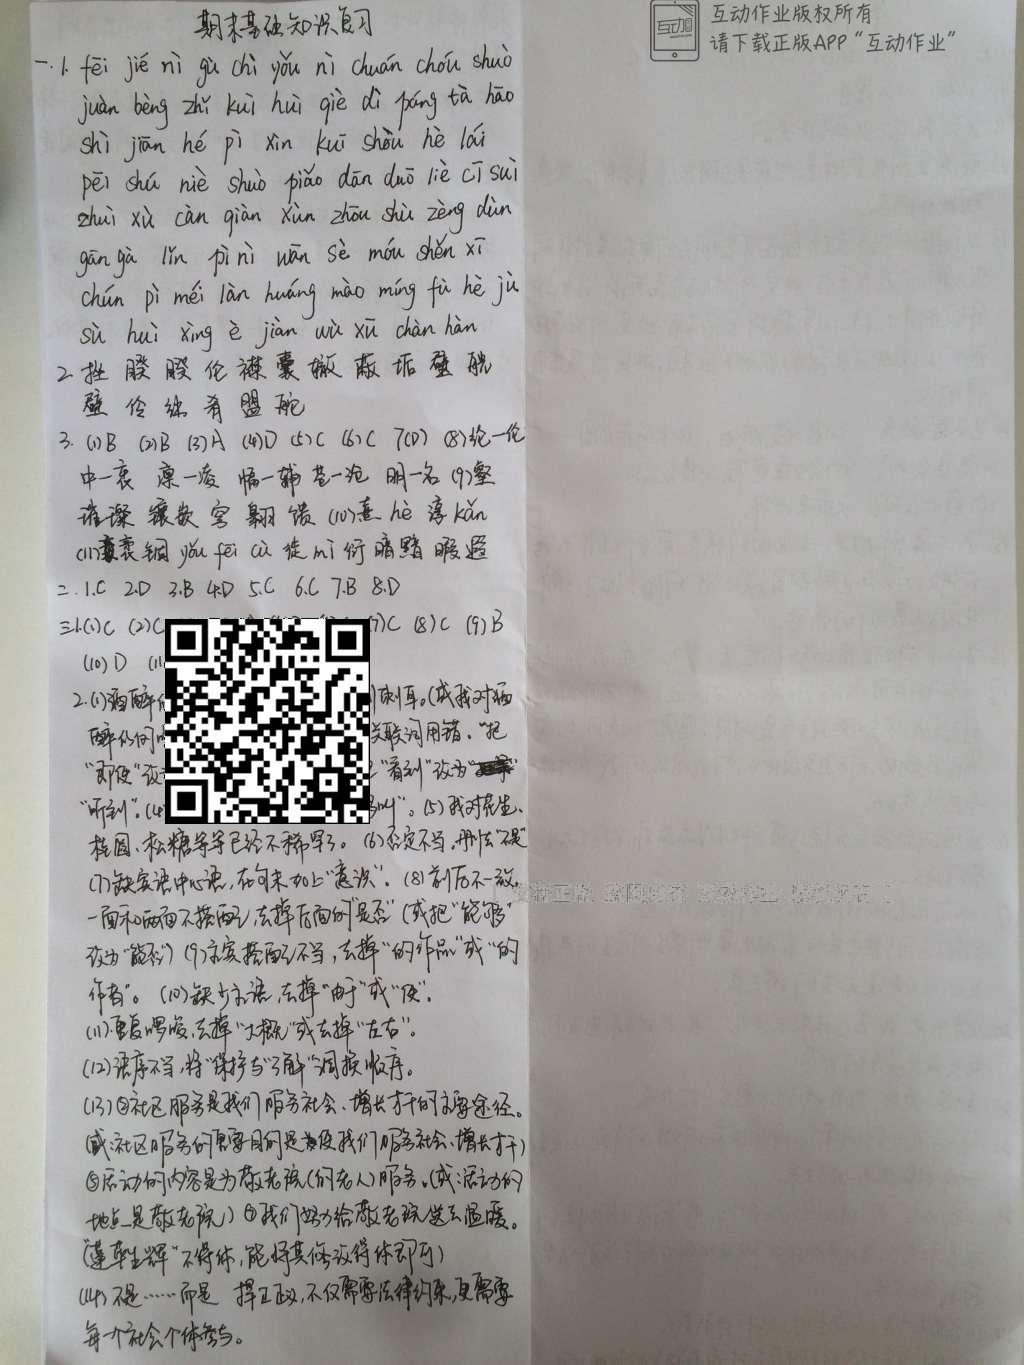 期末基础知识复习
互动作业版权所有
请下载正版APP“互动作业”
一.1. fēi jié nì gù chì yǒu nì chuán chóu shuò
juàn bèng zhǐ kuì huì qiè dì páng tà hāo
shì jiān hé pì xìn kuī shòu hè lái
pēi shú niè shuò piǎo dān duō liè cī suì
zhuì xù càn qiàn xùn zhōu shù zèng dùn
gān gà lǐn pì nì wān sè móu shěn xī
chún pì méi làn huáng mào míng fù hè jù
sù huì xìng è jiàn wù xū chàn hàn
2. 挫 睽 睽 伦 襟 囊 撤 蔽 垢 壁 眈
壁 伶 综 肴 盟 舵
3. (1)B (2)B (3)A (4)D (5)C (6)C 7(D) (8)纶一伦
中一衷 凛一凌 幅一辅 苍一沧 明一名 (9)壑
璀璨 镶嵌 穹 翱 馈 (10)熹 hè 淳 kǎn
(11)衷 锢 yǒu fēi cù 徒 mì 衍 暗 黯 暇 遐
二. 1.C 2.D 3.B 4.D 5.C 6.C 7.B 8.D
三1.(1)C (2)C (7)C (8)C (9)B
(10)D (11
2.(1) 刺耳。(或我对
关联词用错。“把
“即使”改 “看到”改为“
“听到”。(4 ”。(5)我对花生、
桂圆、松糖等等已经不稀罕了。(6)否定不当。删去“不是”
(7)缺宾语中心语,在句末加上“意识”。(8)前后不一致,
一面和两面不搭配,去掉后面的“是否”(或把“能够”
改为“能否”)(9)主宾搭配不当,去掉“的作品”或“的
作者”。(10)缺少主语,去掉“由于”或“使”。
(11)重复啰嗦,去掉“大概”或去掉“左右”。
(12)语序不当,将“保护”与“了解”调换顺序。
(13)②社区服务是我们服务社会、增长才干的主要途径。
(或:社区服务的主要目的是使我们服务社会、增长才干)
③活动的内容是为敬老院(的老人)服务。(或:活动的
地点是敬老院)④我们努力给敬老院送去温暖。
(“蓬荜生辉”不得体,能将其修改得体即可)
(14)不是……而是 捍卫正义,不仅需要法律约束,更需要
每一个社会个体参与。